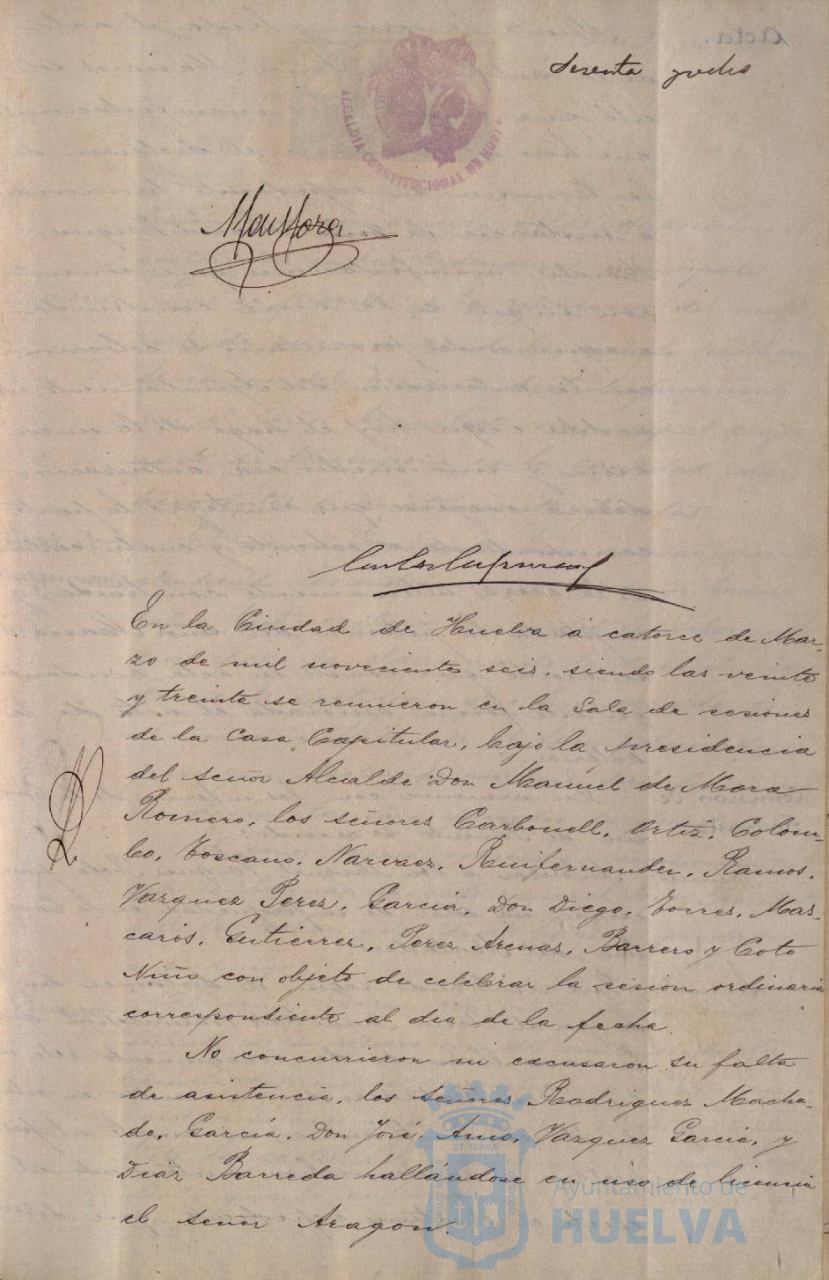 ALCALDIA CONSTITUCIONAL DE HUELVA
M de Mora
En la Ciudad de Huelva á catorce de Mar-
zo de mil novecientos seis, siendo las veinte
y treinta se reunieron en la Sala de sesiones
de la Casa Capitular, bajo la presidencia
del señor Alcalde Don Manuel de Mora
Romero, los señores Carbonell, Ortiz, Colom-
bo, Toscano, Narvaez, Ruifernandez, Ramos,
Vazquez Perez, García, Don Diego, Torres, Mas-
carós, Gutiérrez, Perez Arenas, Barrero y Coto
Niño con objeto de celebrar la sesión ordinaria
correspondiente al día de la fecha.
No concurrieron ni escusaron su falta
de asistencia, los señores Rodriguez Macha-
do, García, Don José, Amo, Vazquez García, y
Diáz Barreda hallándose en uso de licencia
el señor Aragón.
Ayuntamiento de
HUELVA